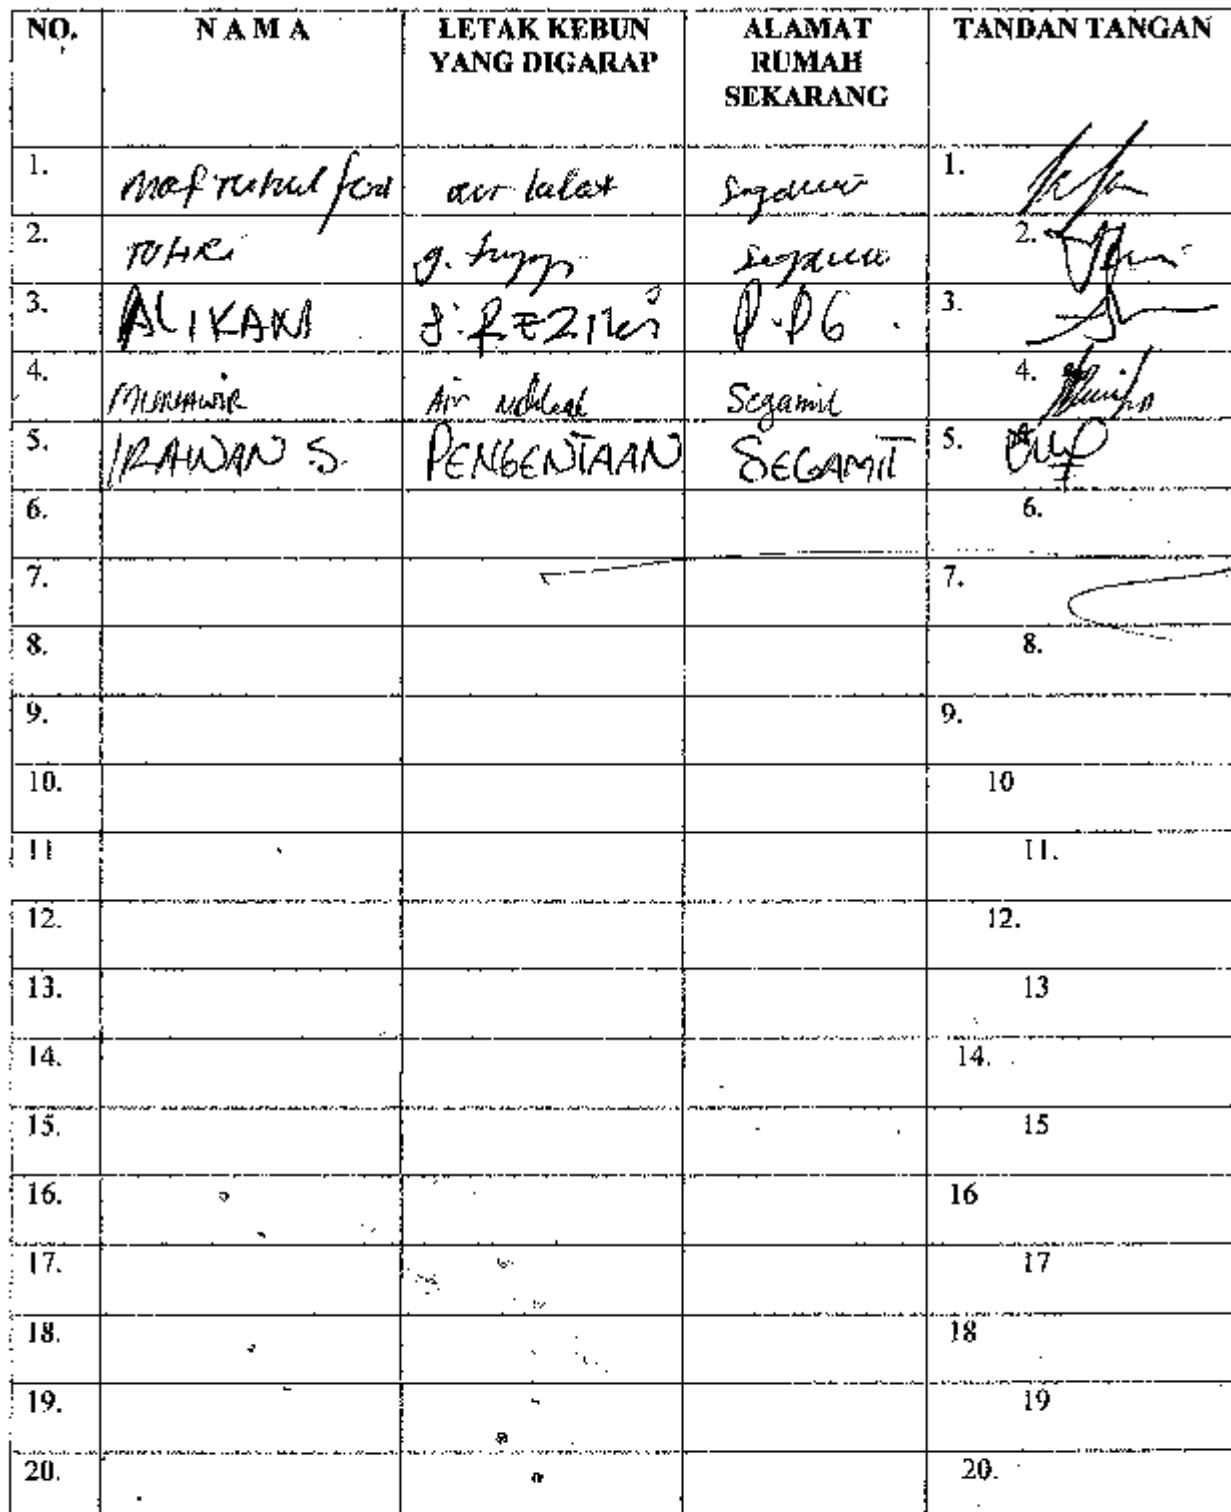 NO. N A M A LETAK KEBUN YANG DIGARAP ALAMAT RUMAH SEKARANG TANDAN TANGAN
1. air lalat 1.
2. TUHRi 2.
3. ALIKAN 3.
4. MUNAWIR Air Segamit 4.
5. IRAWAN S. PENGENTAAN SEGAMIT 5.
6. 6.
7. 7.
8. 8.
9. 9.
10. 10
11 11.
12. 12.
13. 13
14. 14.
15. 15
16. 16
17. 17
18. 18
19. 19
20. 20.